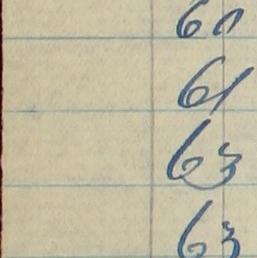 60
61
63
63